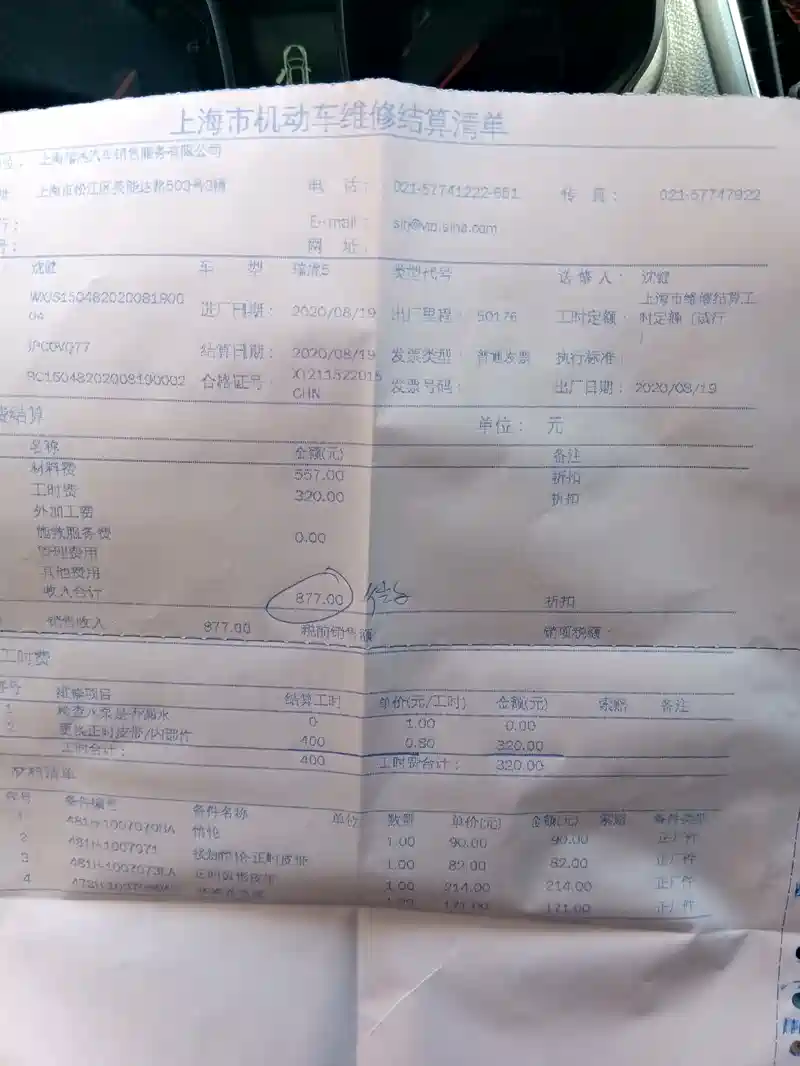 上海市机动车维修结算清单
上海 汽车销售服务有限公司
上海市松江区荣乐 路500号3幢 电 话： 021-57741222-661 传 真： 021-57747922
E-mail： @vip.sina.com
网 址：
沈健 车 型 瑞虎5 类型代号 送修人： 沈健
WXJS150482020081900 04 进厂日期： 2020/08/19 出厂里程： 50176 工时定额： 上海市维修结算工时定额（试行）
沪C0VQ77 结算日期： 2020/08/19 发票类型： 普通发票 执行标准：
RC15048202008190002 合格证号： X1211522015 CHN 发票号码： 出厂日期： 2020/08/19
费结算 单位： 元
名称 金额(元) 备注
材料费 557.00 折扣
工时费 320.00 折扣
外加工费
施救服务费 0.00
管理费用
其他费用
收入合计 877.00 折扣
销售收入 877.00 税前销售额 销项税额
工时费
序号 维修项目 结算工时 单价(元/工时) 金额(元) 索赔 备注
1 检查水泵是否漏水 0 1.00 0.00
2 更换正时皮带/内部件 400 0.80 320.00
工时合计： 400 工时费合计： 320.00
材料清单
序号 备件编号 备件名称 单位 数量 单价(元) 金额(元) 索赔 备件类型
1 481H-1007070BA 惰轮 1.00 90.00 90.00 正厂件
2 481H-1007071 正时皮带 1.00 82.00 82.00 正厂件
3 481H-1007073EA 正时 皮带 1.00 214.00 214.00 正厂件
4 171.00 171.00 正厂件